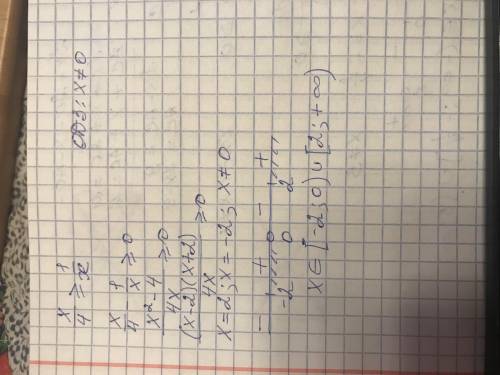 x/4 ≥ 1/x ОДЗ: x≠0
x/4 - 1/x ≥ 0
(x²-4)/4x ≥ 0
((x-2)(x+2))/4x ≥ 0
x=2; x=-2; x≠0
- + - +
-2 0 2
x∈[-2;0)∪[2;+∞)